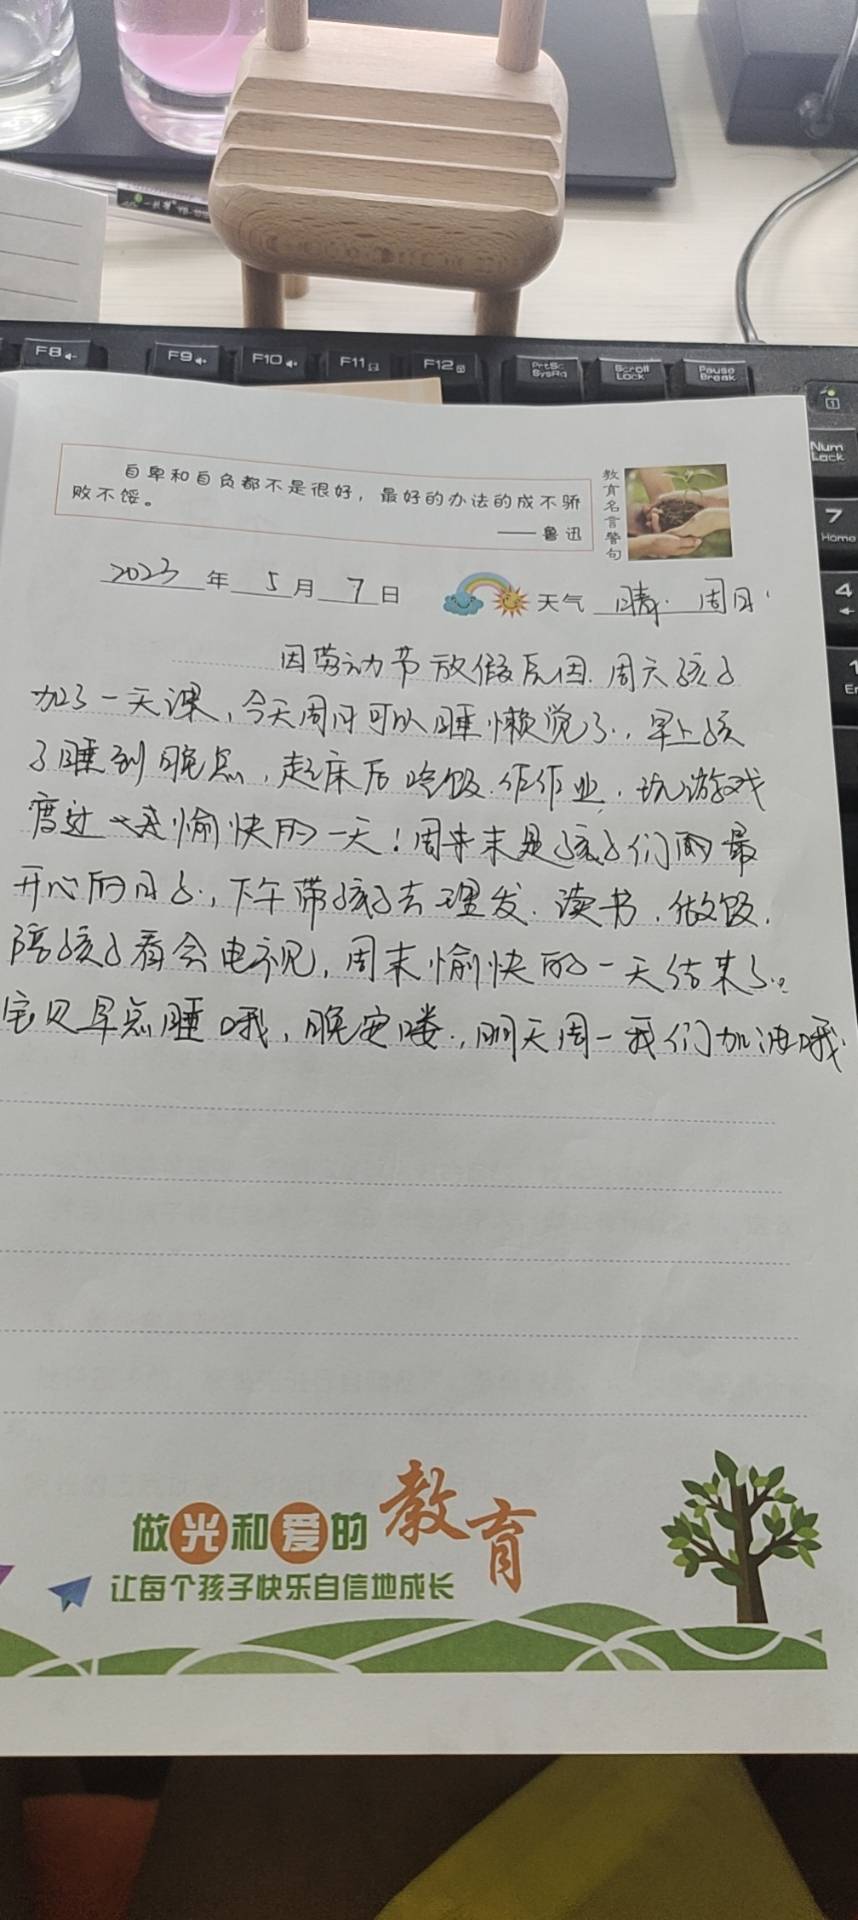 F8
F9
F10
F11
F12
PrtSc
SysRq
Scroll
Lock
Pause
Break
1
Num
Lock
7
Home
4
自卑和自负都不是很好，最好的办法的成不骄
败不馁。
——鲁迅
教育名言警句
2023年5月7日
天气 晴. 周日
因劳动节放假原因.周六孩子
加了一天课,今天周日可以睡懒觉了,早上孩
子睡到晚点,起床后吃饭.作作业.玩游戏
度过愉快的一天!周末是孩子们的最
开心的日子,下午带孩子去理发.读书.做饭.
陪孩子看会电视,周末愉快的一天结束了。
宝贝早点睡哦,晚安喽.,明天周一我们加油哦.
做光和爱的教育
让每个孩子快乐自信地成长